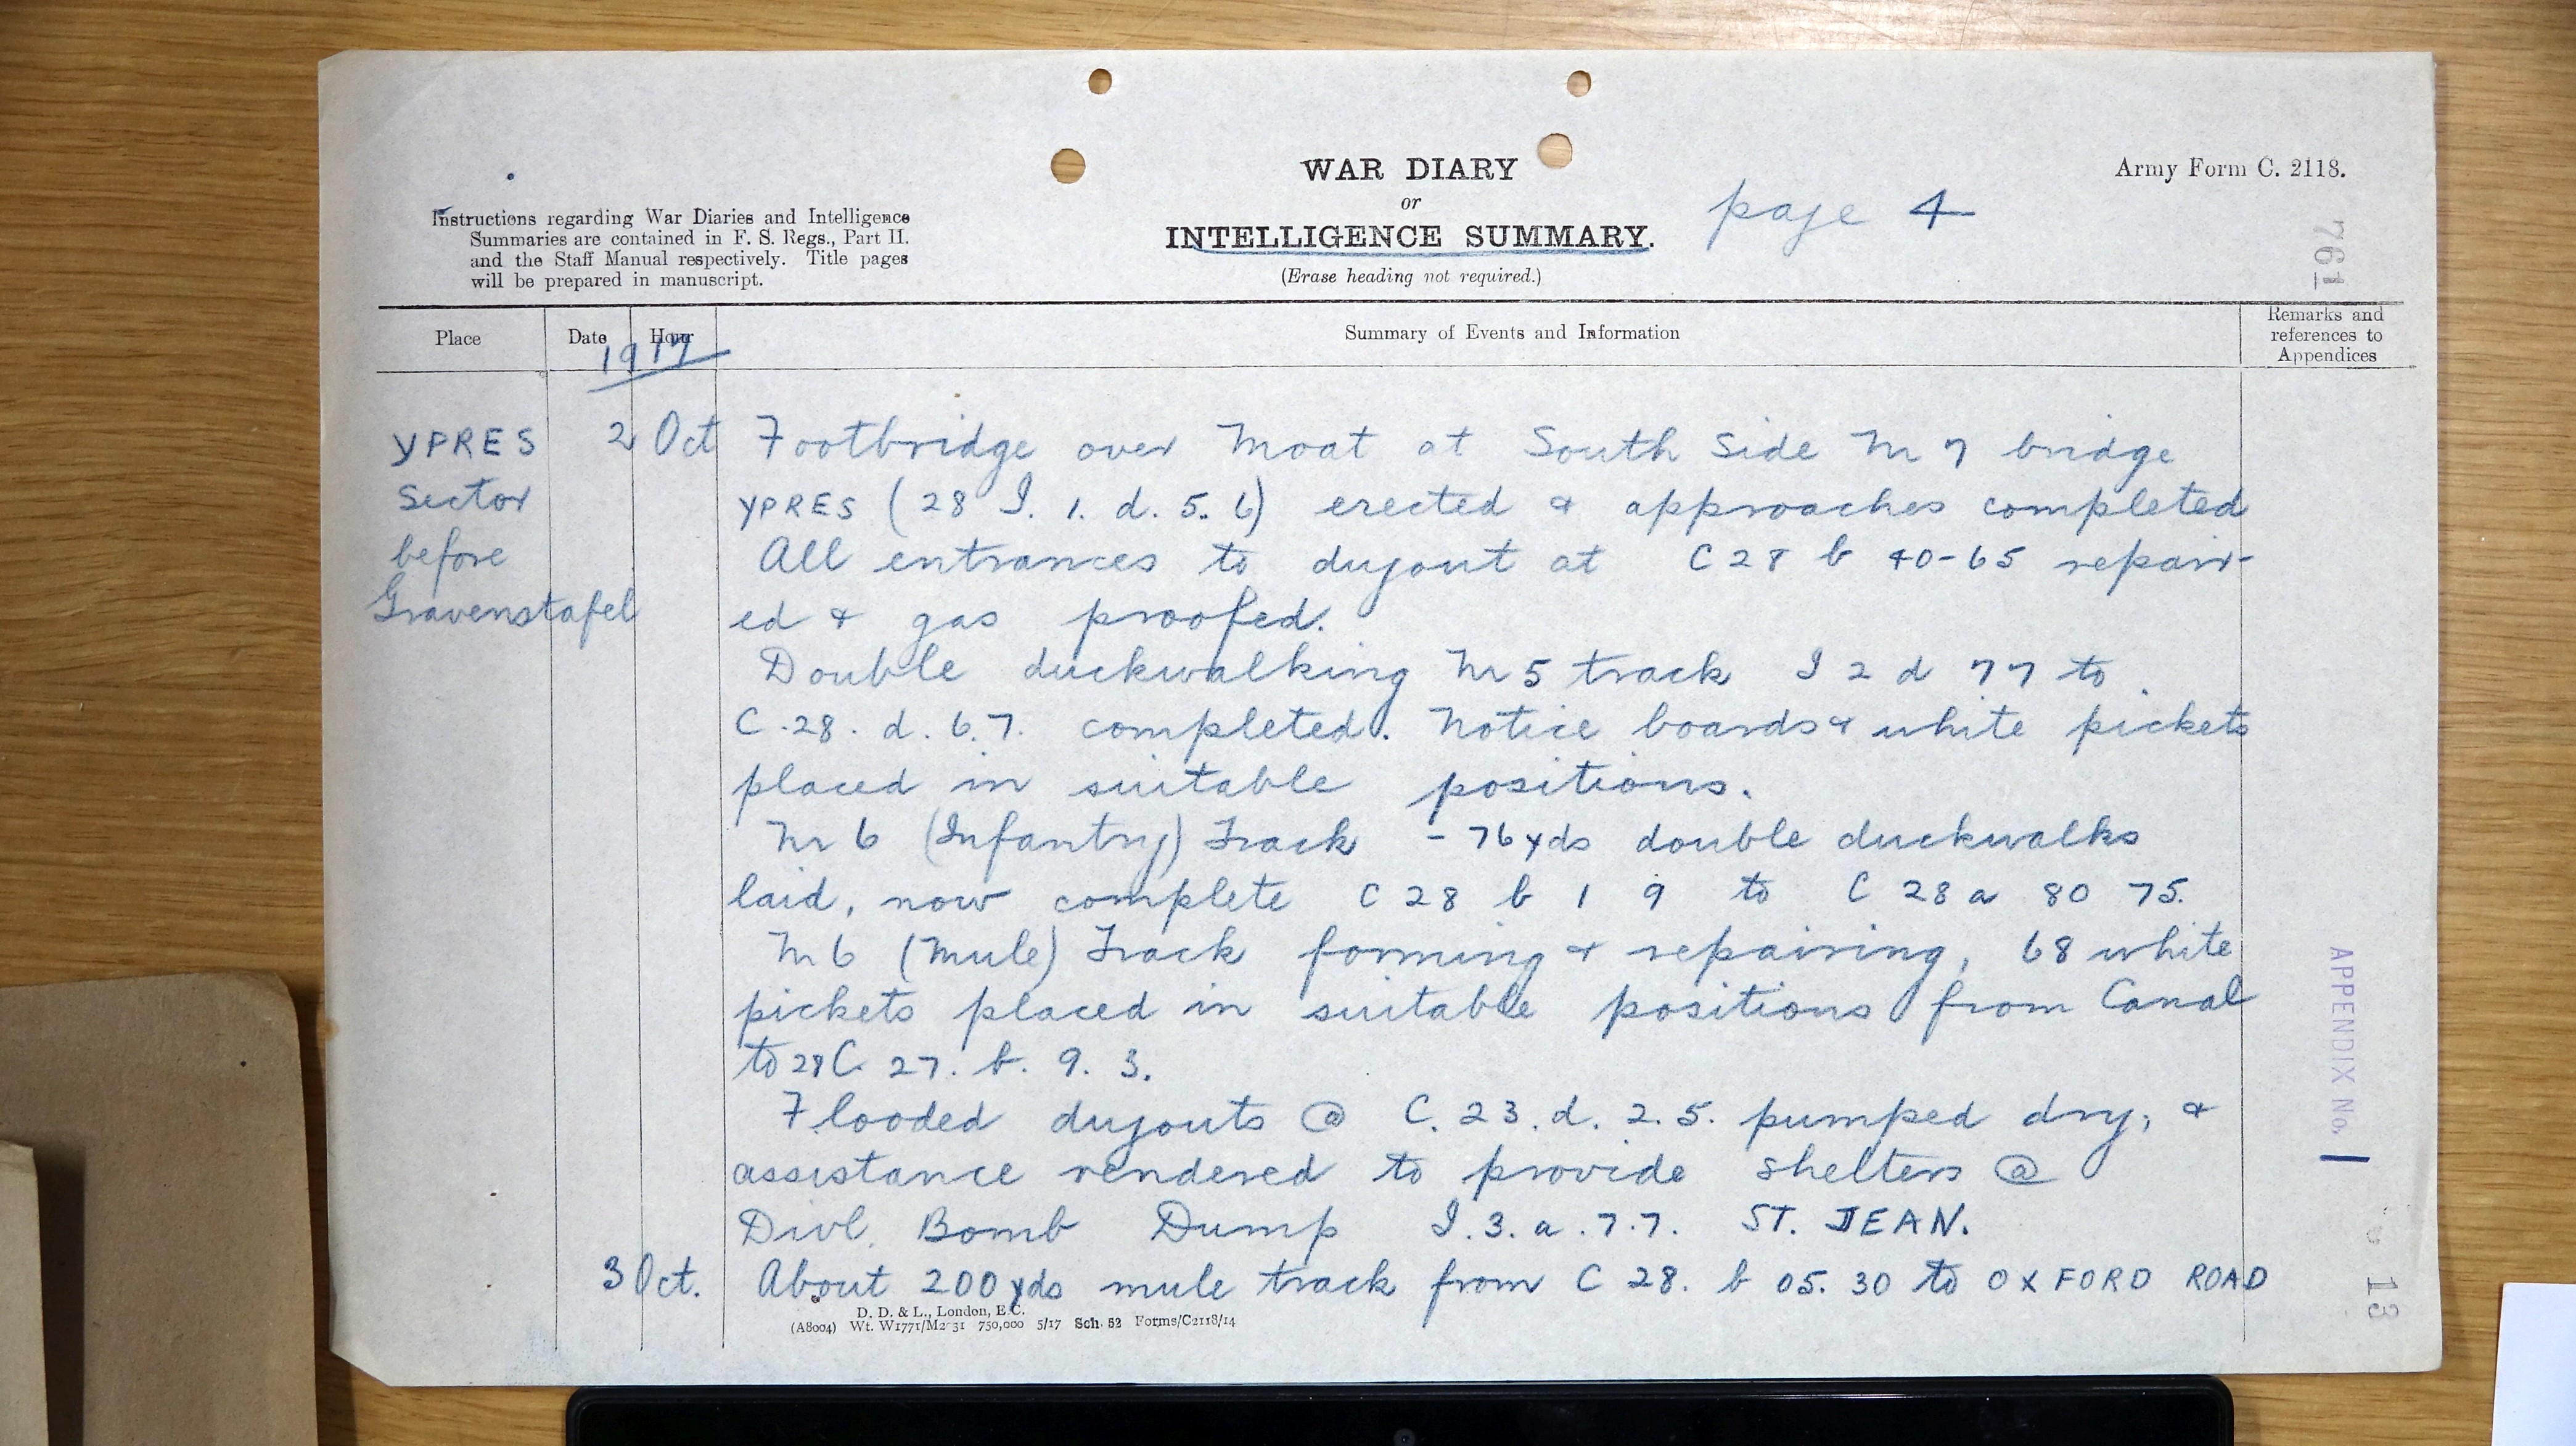 WAR DIARY
or
INTELLIGENCE SUMMARY.
(Erase heading not required.)
page 4
Army Form C. 2118.
Instructions regarding War Diaries and Intelligence
Summaries are contained in F. S. Regs., Part II.
and the Staff Manual respectively. Title pages
will be prepared in manuscript.
761
Place Date Hour Summary of Events and Information Remarks and references to Appendices
1917
YPRES 2 Oct Footbridge over Moat at South Side Nr 7 bridge
Sector YPRES (28 I. 1. d. 5. 6) erected & approaches completed
before All entrances to dugout at C 28 b 40-65 repair-
Gravenstafel ed & gas proofed.
Double duckwalking Nr 5 track I 2 d 77 to
C. 28. d. 6. 7. completed. Notice boards & white pickets
placed in suitable positions.
Nr 6 (Infantry) Track - 76 yds double duckwalks
laid, now complete C 28 b 1 9 to C 28 a 80 75.
Nr 6 (Mule) Track forming & repairing, 68 white
pickets placed in suitable positions from Canal
to 28 C. 27. b. 9. 3.
Flooded dugouts @ C. 23. d. 2. 5. pumped dry, &
assistance rendered to provide shelters @
Divl. Bomb Dump I. 3. a. 7. 7. ST. JEAN.
3 Oct. About 200 yds mule track from C 28. b 05. 30 to OXFORD ROAD
APPENDIX No. 1
13
D. D. & L., London, E.C.
(A8004) Wt. W1771/M2 31 750,000 5/17 Sch. 52 Forms/C2118/14